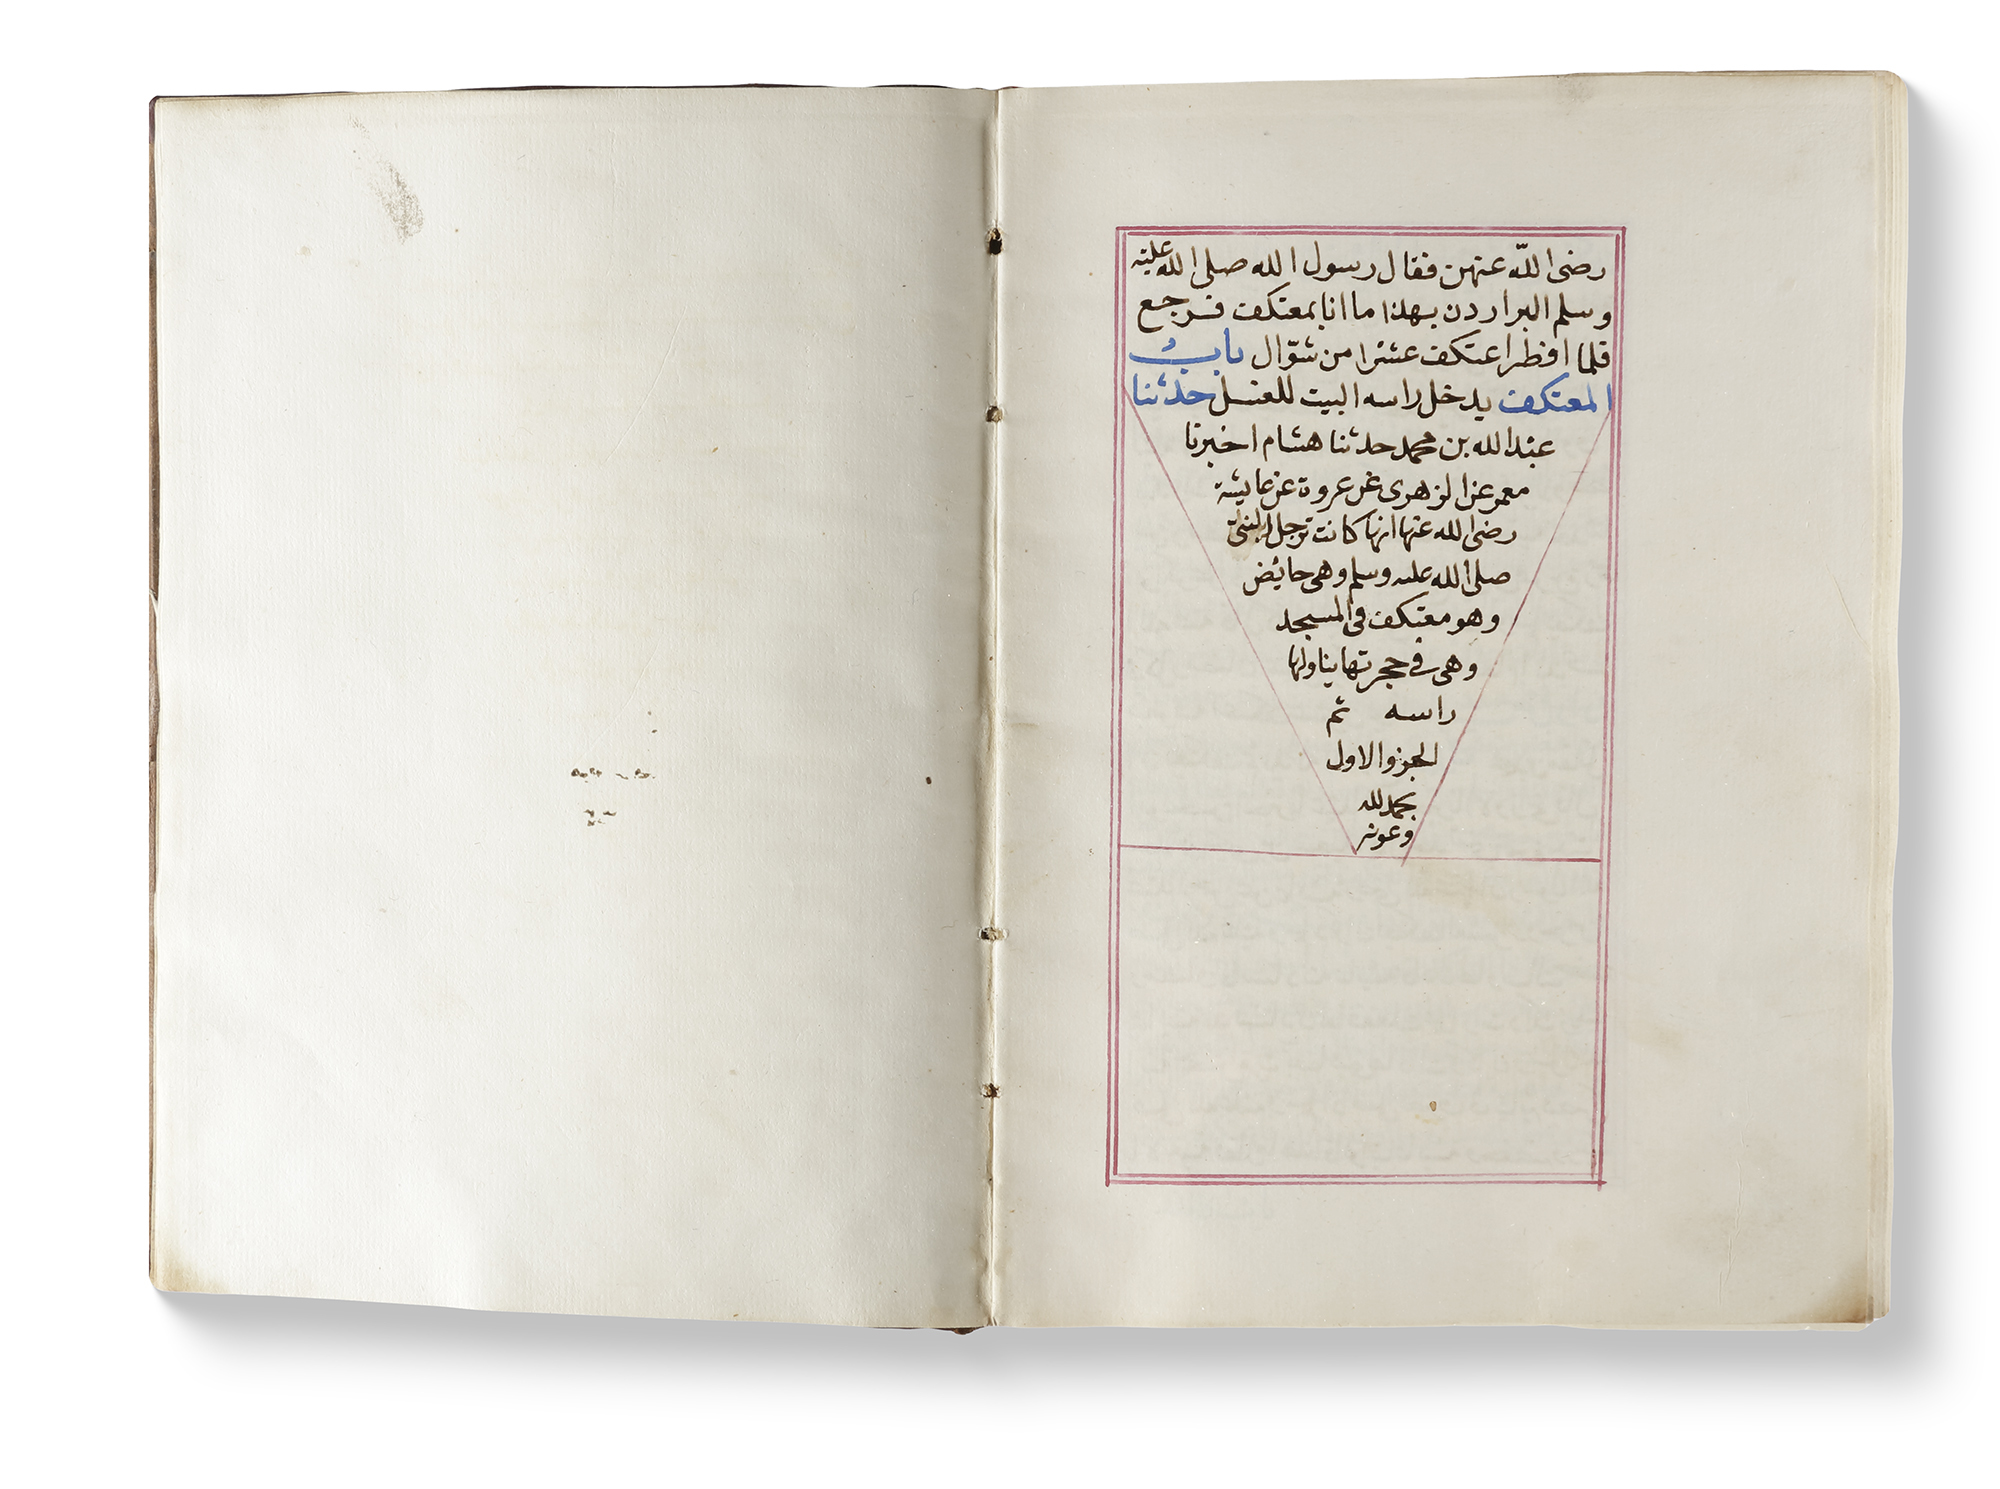 رضى الله عنهن فقال رسول الله صلى الله عليه
وسلم البر اردن بهذا ما انا بمعتكف فرجع
فلما افطر اعتكف عشرا من شوّال باب
المعتكف يدخل راسه البيت للغسل حدثنا
عبد الله بن محمد حدثنا هشام اخبرنا
معمر عن الزهرى عن عروة عن عايشة
رضى الله عنها انها كانت ترجل النبى
صلى الله عليه وسلم وهى حايض
وهو معتكف فى المسجد
وهى فى حجرتها يناولها
راسه ثم
الجزو الاول
بحمد لله
وعونه